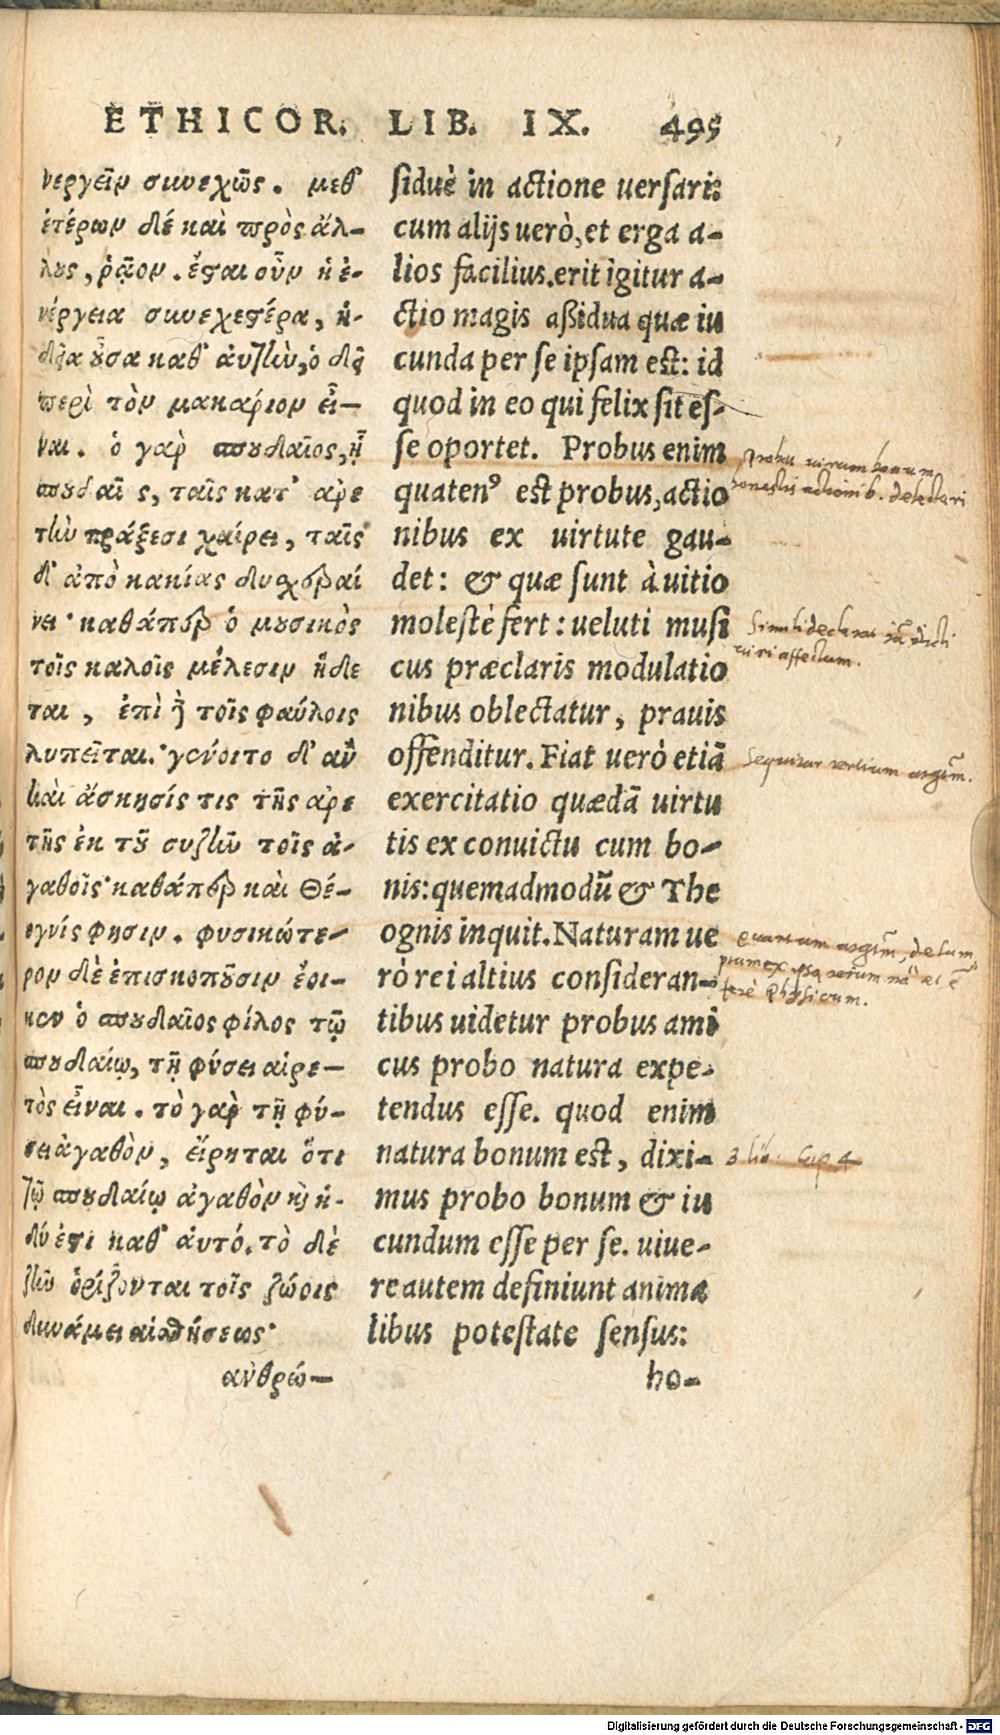 ETHICOR. LIB. IX. 495
νεργεῖν συνεχῶς. μεθ᾽
ἑτέρων δέ καὶ πρὸς ἄλ-
λους, ῥᾷον. ἔσται οὖν ἡ ἐ-
νέργεια συνεχεστέρα, ἡ-
δεῖα οὖσα καθ᾽ αὑτὴν, ὃ δεῖ
περὶ τὸν μακάριον εἶ-
ναι. ὁ γὰρ σπουδαῖος, ᾗ
σπουδαῖ ς, ταῖς κατ᾽ αρε
τὴν πράξεσι χαίρει, ταῖς
δ᾽ ἀπὸ κακίας δυσχεραί
νει· καθάπερ ὁ μουσικὸς
τοῖς καλοῖς μέλεσιν ἥδε
ται, ἐπὶ δὲ τοῖς φαύλοις
λυπεῖται. γένοιτο δ᾽ αὖ
καὶ ἄσκησίς τις τῆς αρε
τῆς ἐκ τοῦ συζῆν τοῖς ἀ-
γαθοῖς· καθάπερ καὶ Θέ-
ογνίς φησιν. φυσικώτε-
ρον δὲ ἐπισκοποῦσιν ἔοι-
κεν ὁ σπουδαῖος φίλος τῷ
σπουδαίῳ, τῇ φύσει αἱρε-
τὸς εἶναι. τὸ γαρ τῇ φύ-
σει ἀγαθὸν, εἴρηται ὅτι
τῷ σπουδαίῳ ἀγαθὸν καὶ ἡ-
δύ ἐστι καθ᾽ αὑτό. τὸ δὲ
ζῆν ὁρίζονται τοῖς ζώοις
δυνάμει αἰσθήσεως·
ανθρώ-
siduè in actione uersari:
cum alijs uerò, et erga a-
lios facilius. erit igitur a-
ctio magis aßidua quæ iu
cunda per se ipsam est: id
quod in eo qui felix sit es-
se oportet. Probus enim
quatenꝰ est probus, actio
nibus ex uirtute gau-
det: & quæ sunt à uitio
molestè fert: ueluti musi
cus præclaris modulatio
nibus oblectatur, prauis
offenditur. Fiat uerò etiā
exercitatio quædā uirtu
tis ex conuictu cum bo-
nis: quemadmodū & The
ognis inquit. Naturam ue
rò rei altius consideran-
tibus uidetur probus ami
cus probo natura expe-
tendus esse. quod enim
natura bonum est, dixi-
mus probo bonum & iu
cundum esse per se. uiue-
re autem definiunt anima
libus potestate sensus:
ho-
virum bonum
honestis actionib. delectari
Simili declarat
viri affectum.
Sequitur tertium argm̄.
quartum argm̄, desum
ptum ex ipsa rerum
ferè Physicum.
3 lib. Cap 4
Digitalisierung gefördert durch die Deutsche Forschungsgemeinschaft - DFG